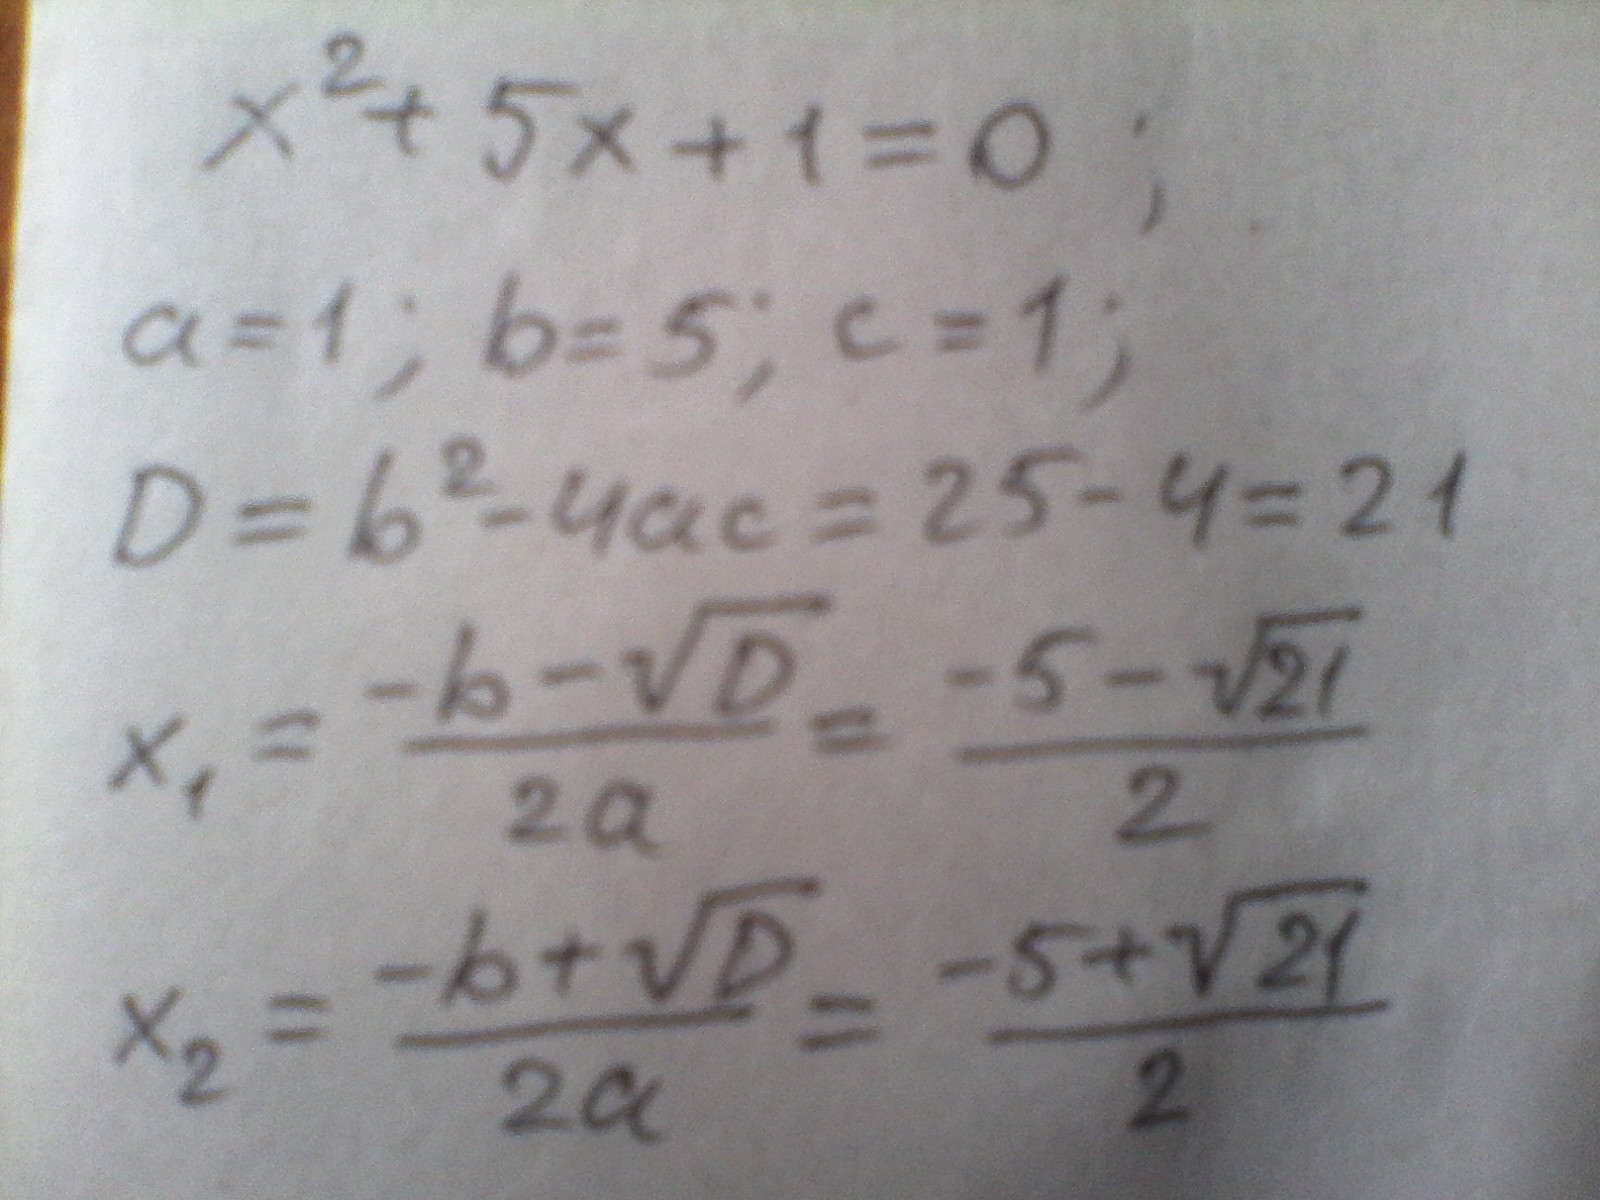 x² + 5x + 1 = 0 ;
a = 1 ; b = 5 ; c = 1 ;
D = b² - 4ac = 25 - 4 = 21
x₁ = (-b - √D)/(2a) = (-5 - √21)/2
x₂ = (-b + √D)/(2a) = (-5 + √21)/2